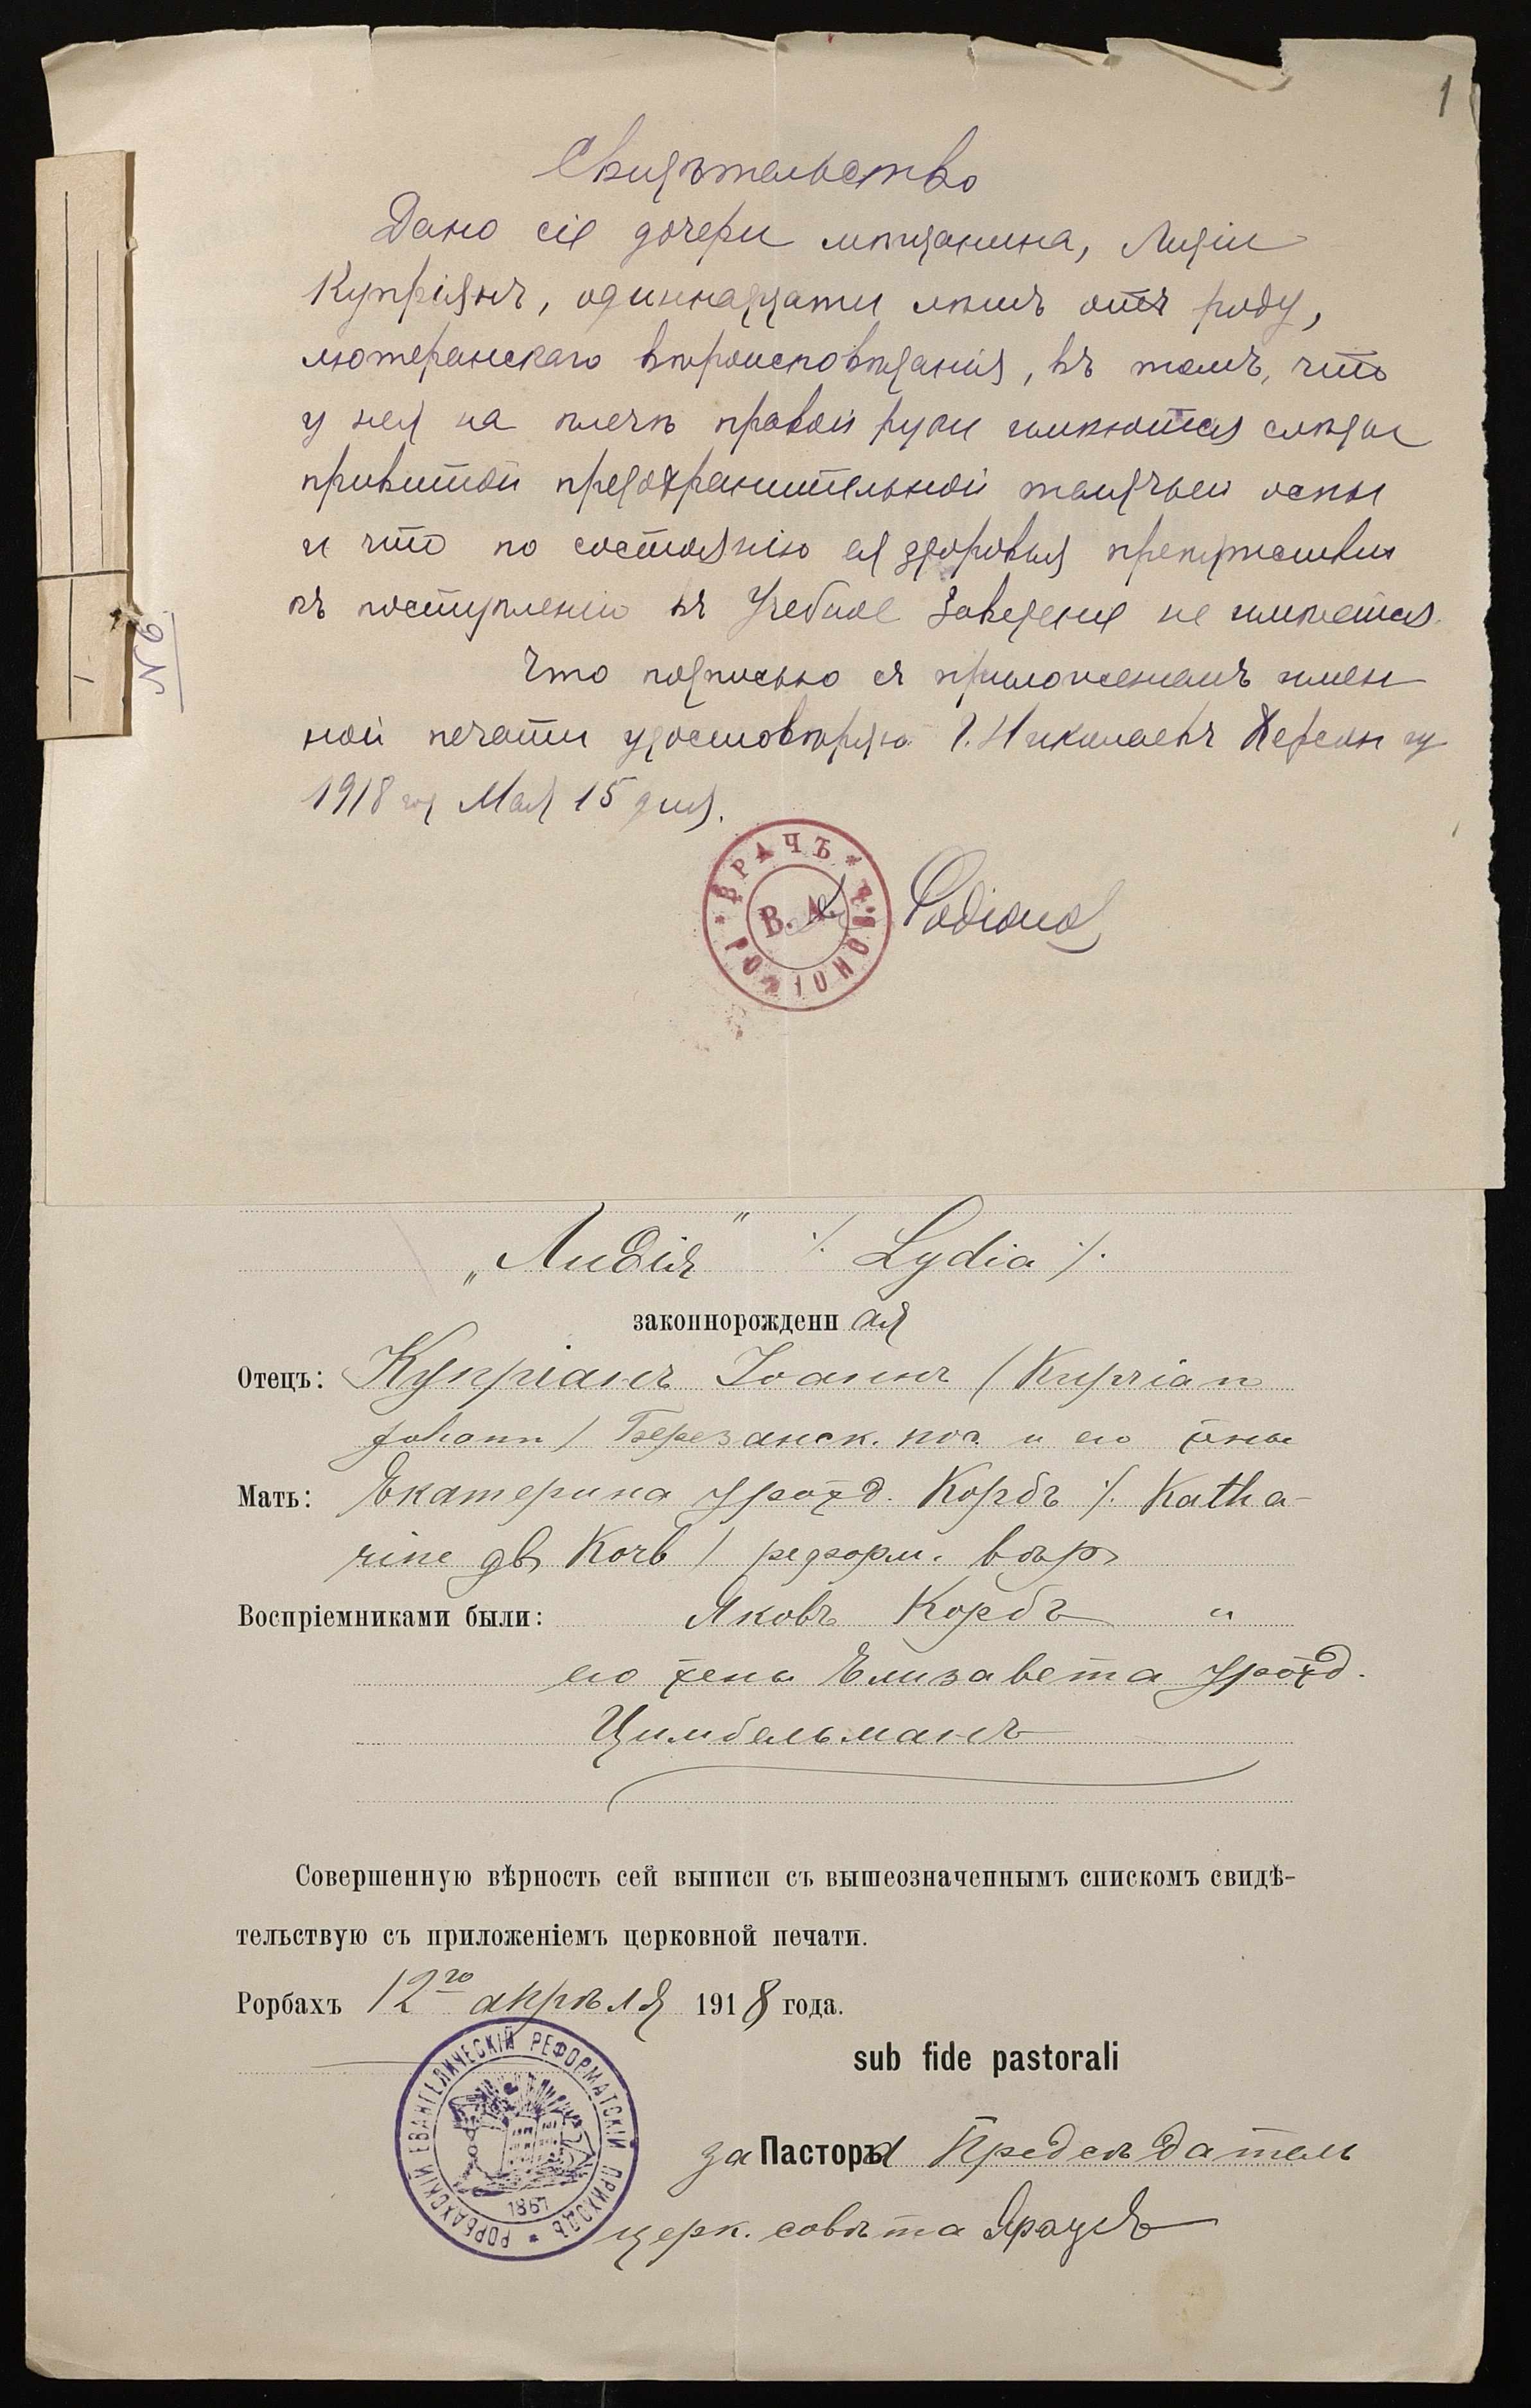 1
Свидѣтельство
Дано сіе дочери мѣщанина, Лидіи
Купріянъ, одиннадцати лѣтъ отъ роду,
лютеранскаго вѣроисповѣданія, въ томъ, что
у нея на плечѣ правой руки имѣются слѣды
привитой предохранительной телячьей оспы
и что по состоянію ея здоровья препятствія
къ поступленію въ Учебное Заведеніе не имѣется.
Что подписью съ приложеніемъ имен
ной печати удостовѣряю Г. Николаевъ Херсон гу
1918 год Мая 15 дня.
№ 6
ВРАЧЪ
В. А.
Родіонов
„Лидія" ·/. Lydia ·/.
законнорожденн ая
Отецъ: Купріанъ Іоаннъ / Kuprian
Johann / Березанск. пос. и его жены
Мать: Екатерина урожд. Корбъ ·/. Katha-
rine gb Korb / реформ. вѣр
Воспріемниками были: Яковъ Корбъ и
его жена Елизавета урожд.
Цимбельманъ
Совершенную вѣрность сей выписи съ вышеозначеннымъ спискомъ свидѣ-
тельствую съ приложеніемъ церковной печати.
Рорбахъ 12го апрѣля 1918 года.
РОРБАХСКІЙ ЕВАНГЕЛИЧЕСКІЙ РЕФОРМАТСКІЙ ПРИХОДЪ
1867
sub fide pastorali
за Пастора Предсѣдатель
церк. совѣта